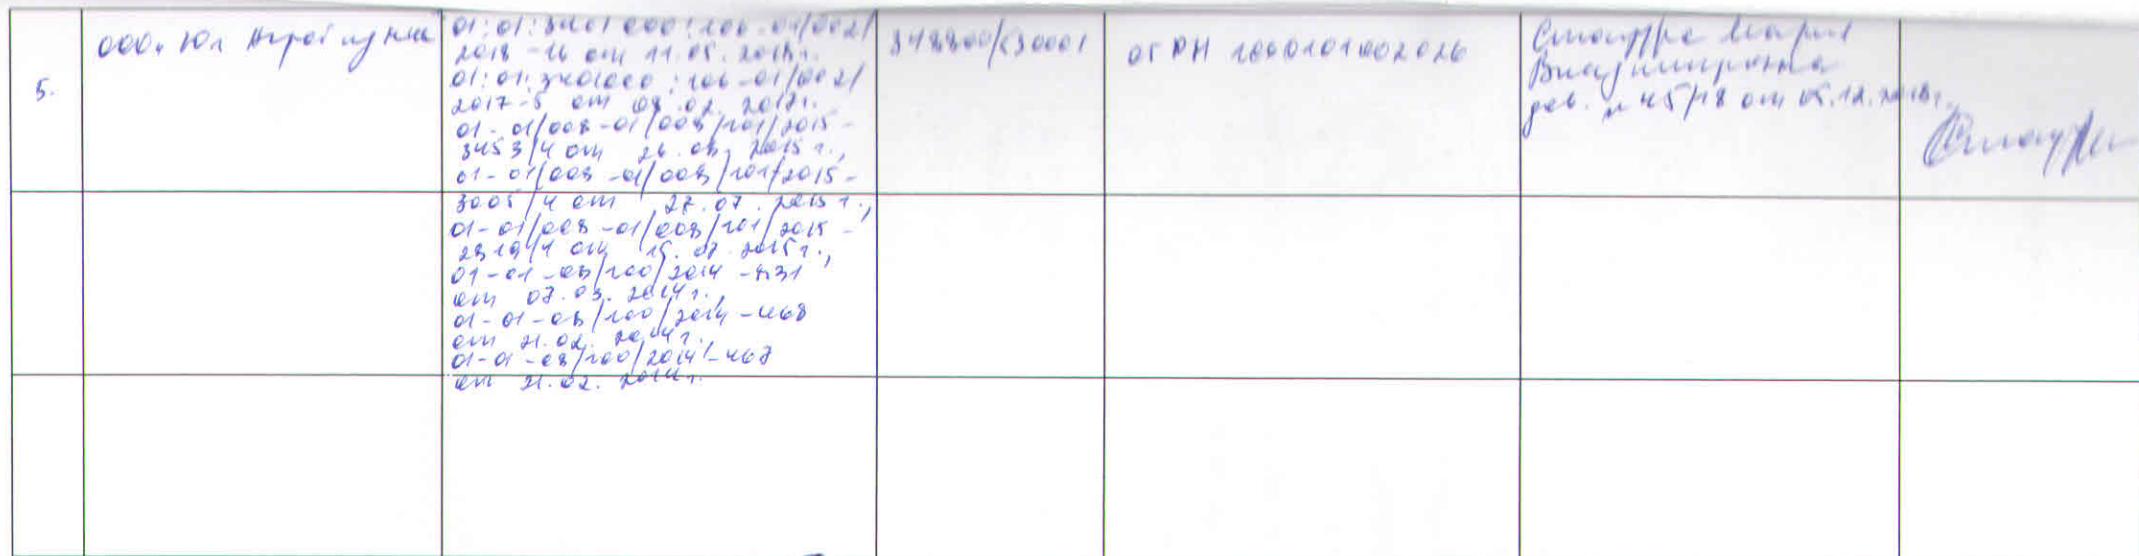 5.
ООО „Юг Агробизнес"
01:01:3401000:106-01/002/
2018-16 от 11.05.2018г.
01:01:3401000:106-01/002/
2017-5 от 08.02.2017г.
01-01/008-01/008/101/2015-
3453/4 от 26.08.2015 г.,
01-01/008-01/008/101/2015-
3005/4 от 27.07.2015 г.,
01-01/008-01/008/101/2015-
2819/4 от 15.07.2015г.,
01-01-08/100/2014-831
от 07.03.2014г.,
01-01-08/100/2014-468
от 21.02.2014г.,
01-01-08/100/2014-467
от 21.02.2014г.
348800/
ОГРН 1060101002026
Мария
Владимировна
дов. № 45/18 от 05.12.2018г.